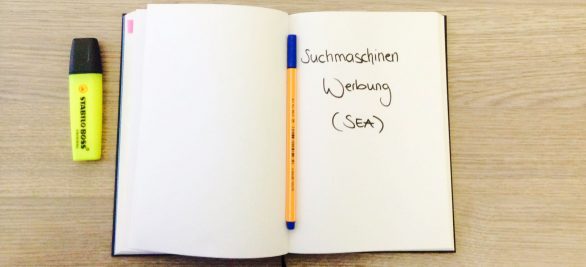 STABILO BOSS
Suchmaschinen
Werbung
(SEA)